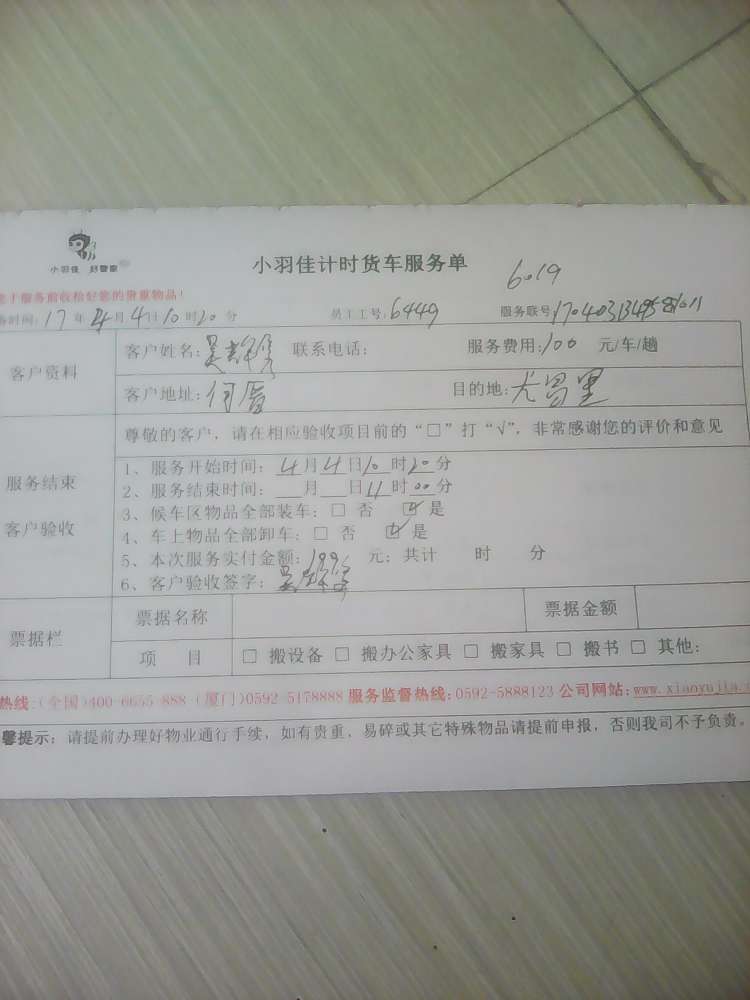 小羽佳 好管家
小羽佳计时货车服务单
6019
于服务前收检好您的贵重物品!
时间: 17 年 4 月 4 日 10 时 20 分 员工工号: 6449 服务联号
客户资料
客户姓名: 联系电话: 服务费用: 100 元/车/趟
客户地址: 何厝 目的地:
服务结束
客户验收
尊敬的客户, 请在相应验收项目前的 “□” 打 “√”, 非常感谢您的评价和意见
1、服务开始时间: 4 月 4 日 10 时 20 分
2、服务结束时间: 月 日 11 时 00 分
3、候车区物品全部装车: □ 否 ☑ 是
4、车上物品全部卸车: □ 否 ☑ 是
5、本次服务实付金额: 元; 共计 时 分
6、客户验收签字:
票据栏
票据名称 票据金额
项 目 □ 搬设备 □ 搬办公家具 □ 搬家具 □ 搬书 □ 其他:
热线:(全国)400-6655-888 (厦门)0592-5178888 服务监督热线:0592-5888123 公司网站:www.xiaoyujia.
馨提示: 请提前办理好物业通行手续, 如有贵重、易碎或其它特殊物品请提前申报, 否则我司不予负责。